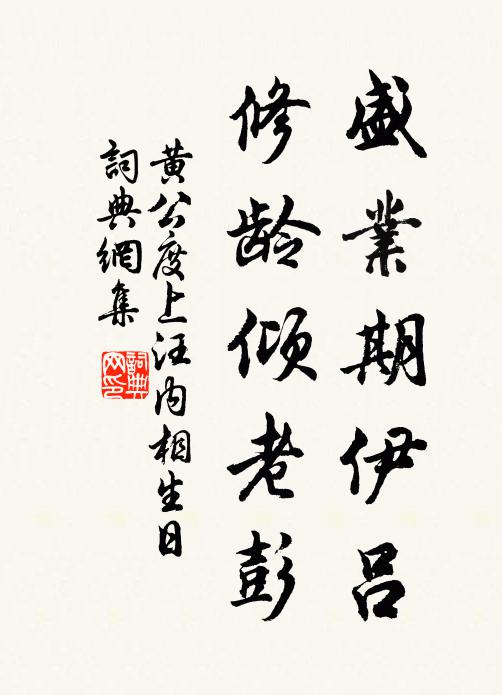 盛業期伊呂
修龄傾老彭
黃公度上汪内相生日
詞典網集
詞典網印